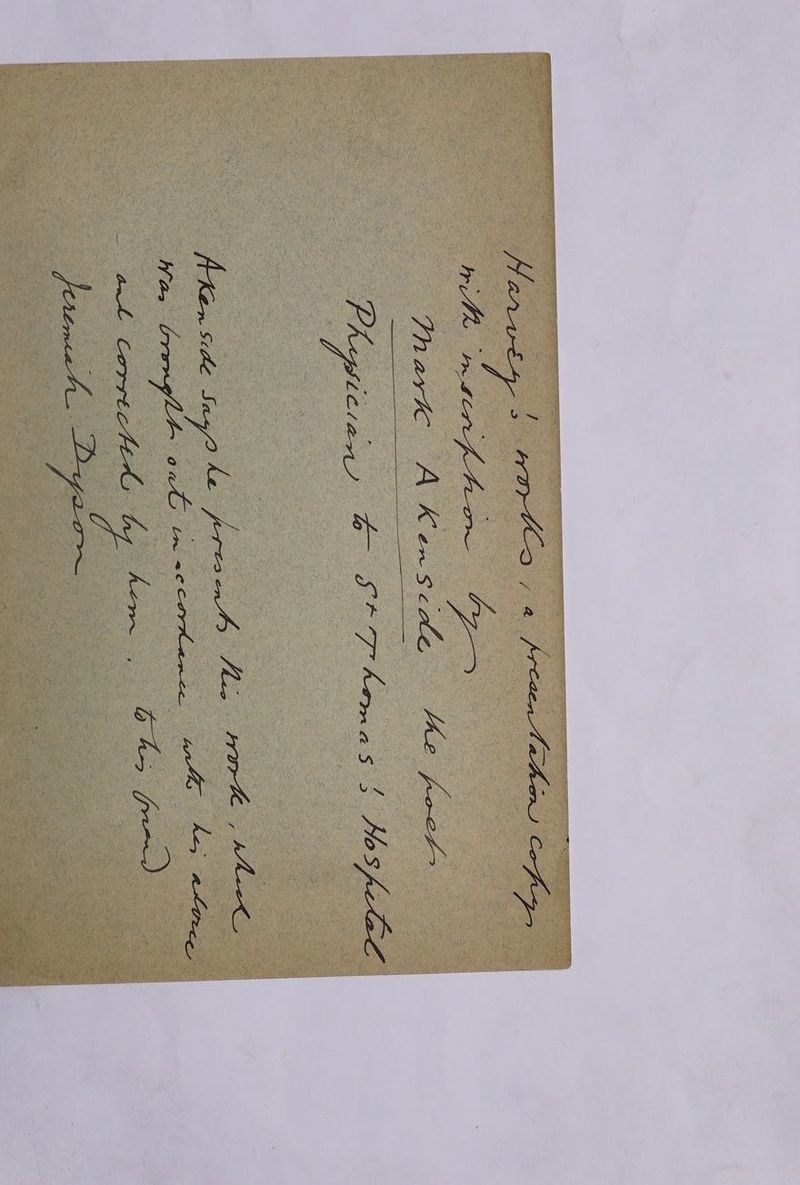 Harvey's works, a presentation copy
with inscription by
Mark Akenside the poet
Physician to St Thomas's Hospital
Akenside says he presents this work, which
was brought out in accordance with his advice
and corrected by him, to his friend
Jeremiah Dyson